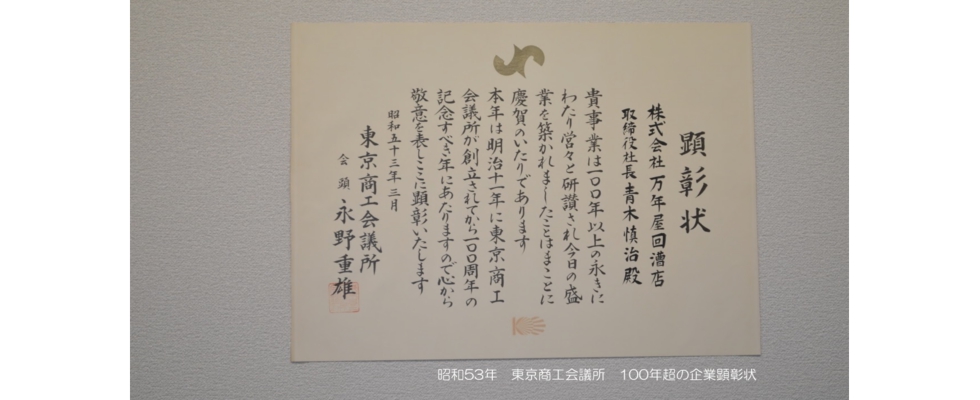 顕彰状
株式会社 万年屋回漕店
取締役社長 青木慎治殿
貴事業は一〇〇年以上の永きに
わたり営々と研讃され今日の盛
業を築かれましたことはまことに
慶賀のいたりであります
本年は明治十一年に東京商工
会議所が創立されてから一〇〇周年の
記念すべき年にあたりますので心から
敬意を表しここに顕彰いたします
昭和五十三年三月
東京商工会議所
会頭 永野重雄
昭和53年 東京商工会議所 100年超の企業顕彰状